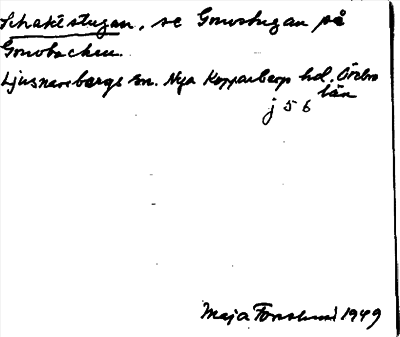 Schakéstugan, se Gonostugan på
Gonobacken.
Ljusnarsbergs sn. Nya Kopparbergs hd. Örebro
län
j 56
Maja Forslund 1949